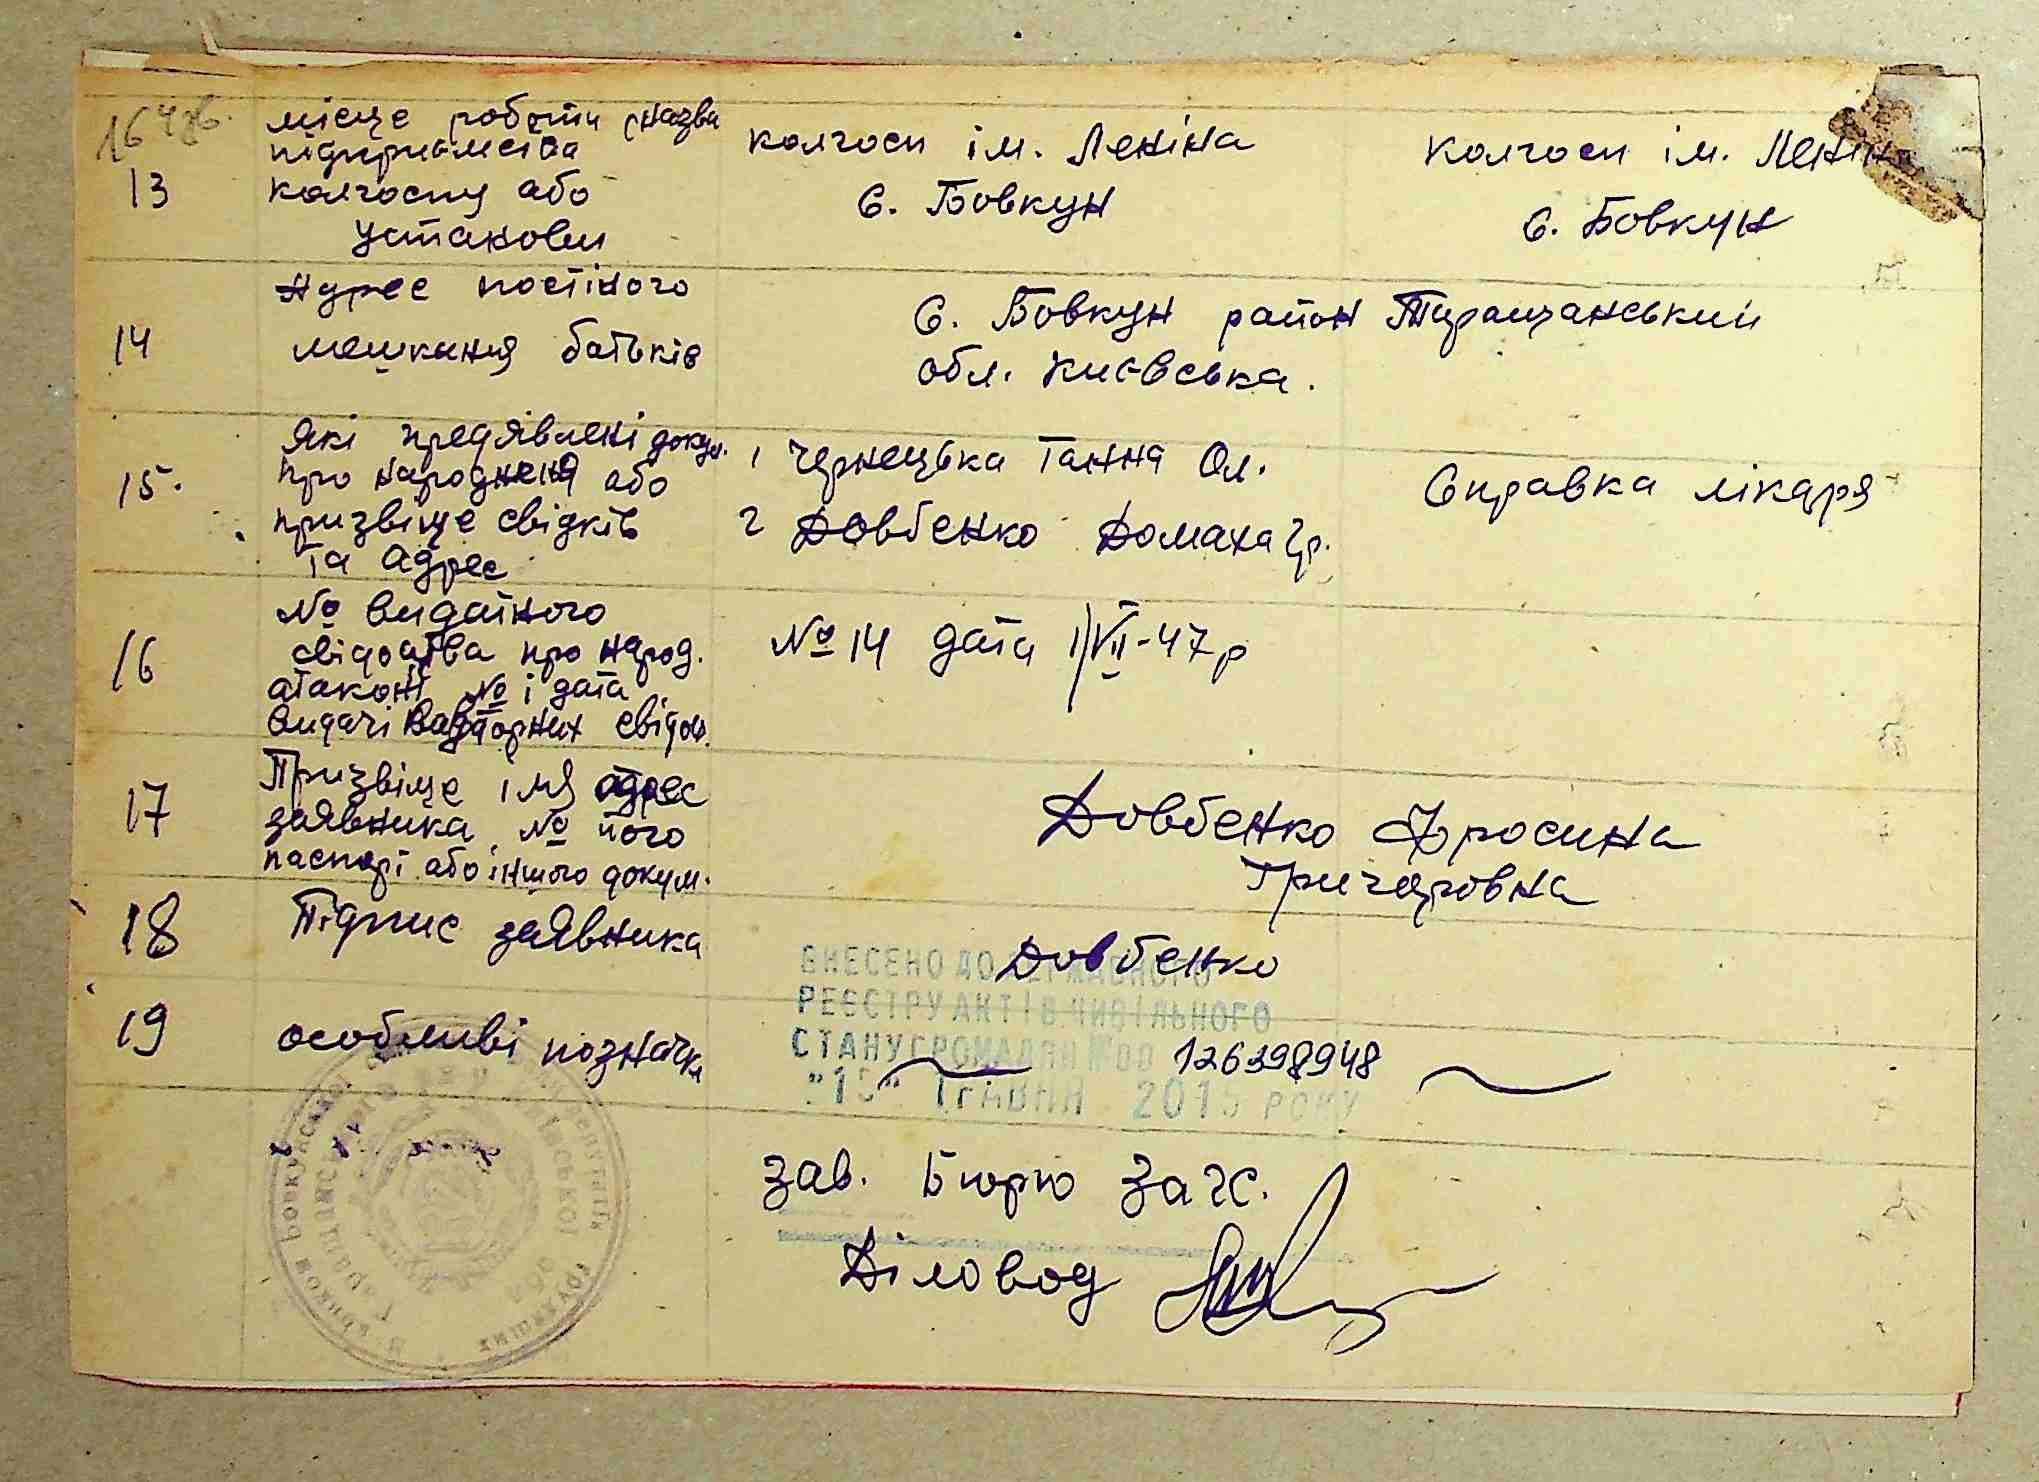 13
місце роботи (назва
підприємства
колгоспу або
установи
колгосп ім. Леніна
с. Бовкун
колгосп ім. Леніна
с. Бовкун
14
Адрес постіного
мешкання батьків
с. Бовкун район Таращанський
обл. Київська.
15.
Які предявлені докум.
про народженя або
призвіще свідків
та адрес
1 Чернецька Ганна Ол.
2 Довбенко Домаха Гр.
Справка лікаря
16
№ видатного
свідоцтва про народ.
а також № і дата
видачі повторних свідоц.
№ 14 дата 1/VII-47р
17
Призвіще імя адрес
заявника № його
паспорті або іншого докум.
Довбенко Фросина
Григоровна
18
Підпис заявника
Довбенко
19
особливі позначки
ВНЕСЕНО ДО ДЕРЖАВНОГО
РЕЄСТРУ АКТІВ ЦИВІЛЬНОГО
СТАНУ ГРОМАДЯН №00 126398948
"15" травня 2015 РОКУ
зав. Бюро Загс.
Діловод